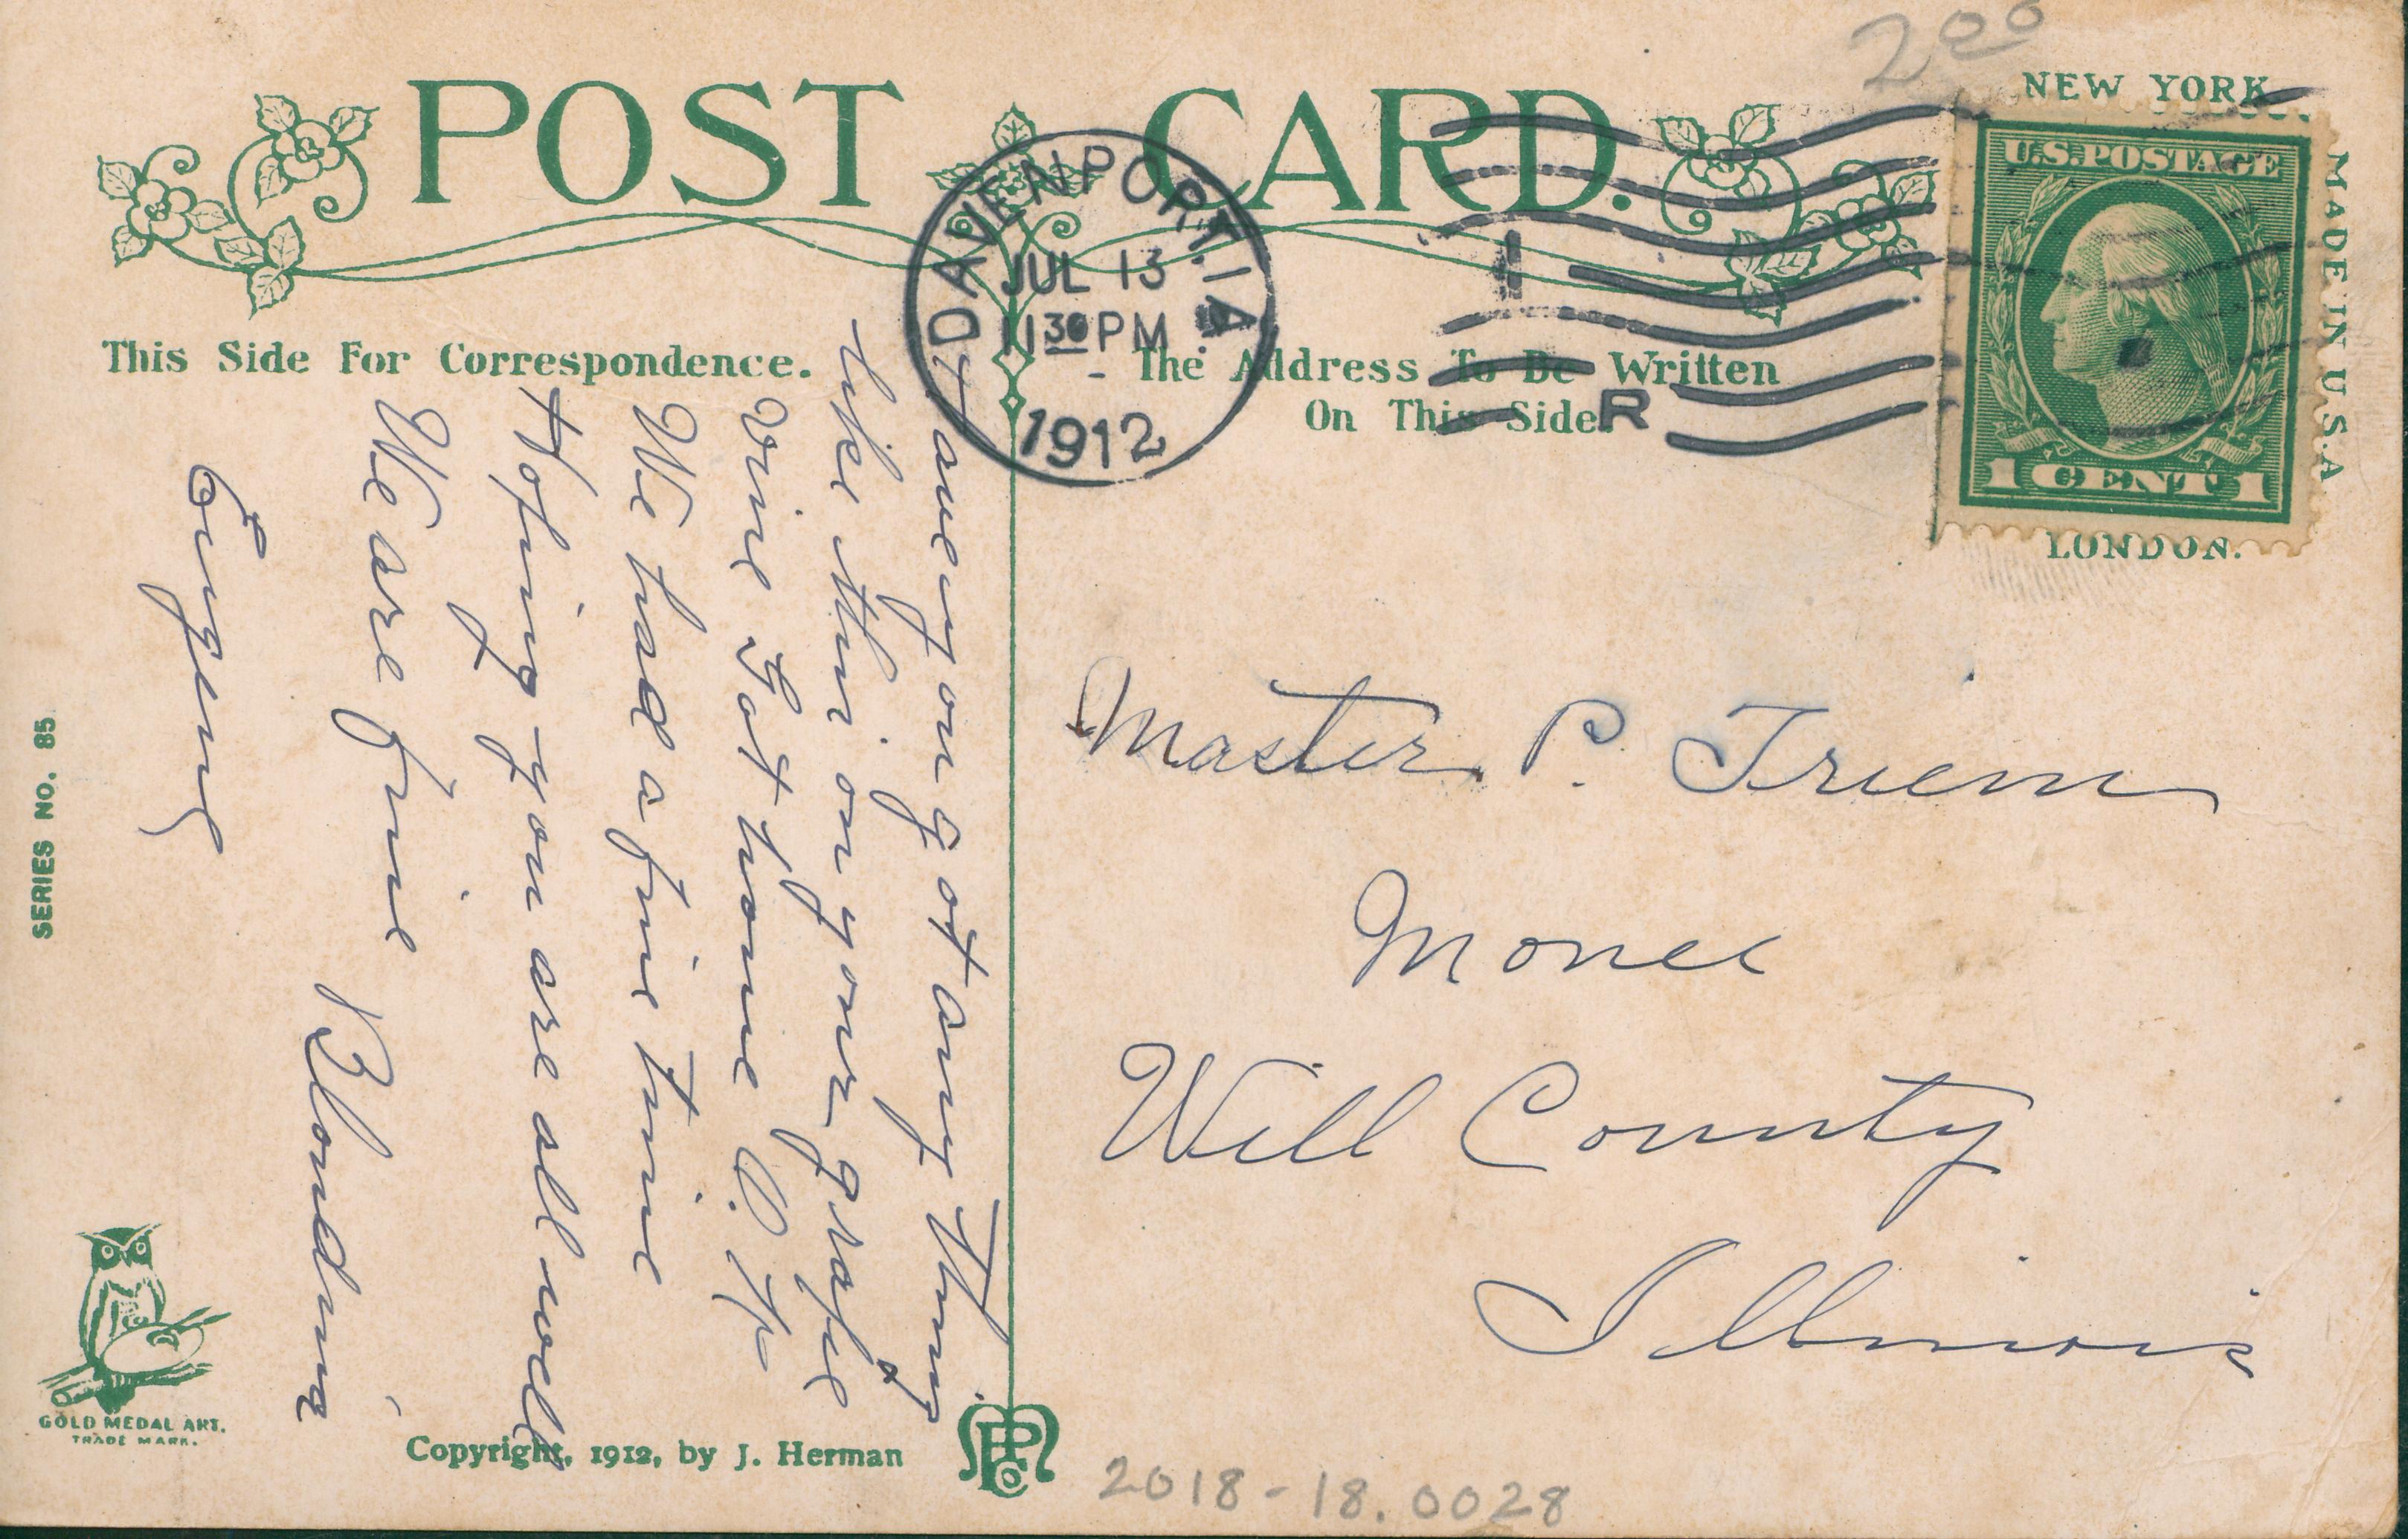 2 00
POST CARD.
NEW YORK.
MADE IN U.S.A
LONDON.
U.S. POSTAGE
1 CENT 1
DAVENPORT, IA.
JUL 13
11 30 PM
1912
1
R
This Side For Correspondence.
The Address To Be Written
On This Side.
Have you got any thing
like this on your grape
vine Got home O.K
We had a fine time
Hoping you are all well
We are fine
Eugene Blonding
Master P. Triem
Monee
Will County
Illinois
SERIES NO. 85
GOLD MEDAL ART.
TRADE MARK.
Copyright, 1912, by J. Herman
2018-18.0028